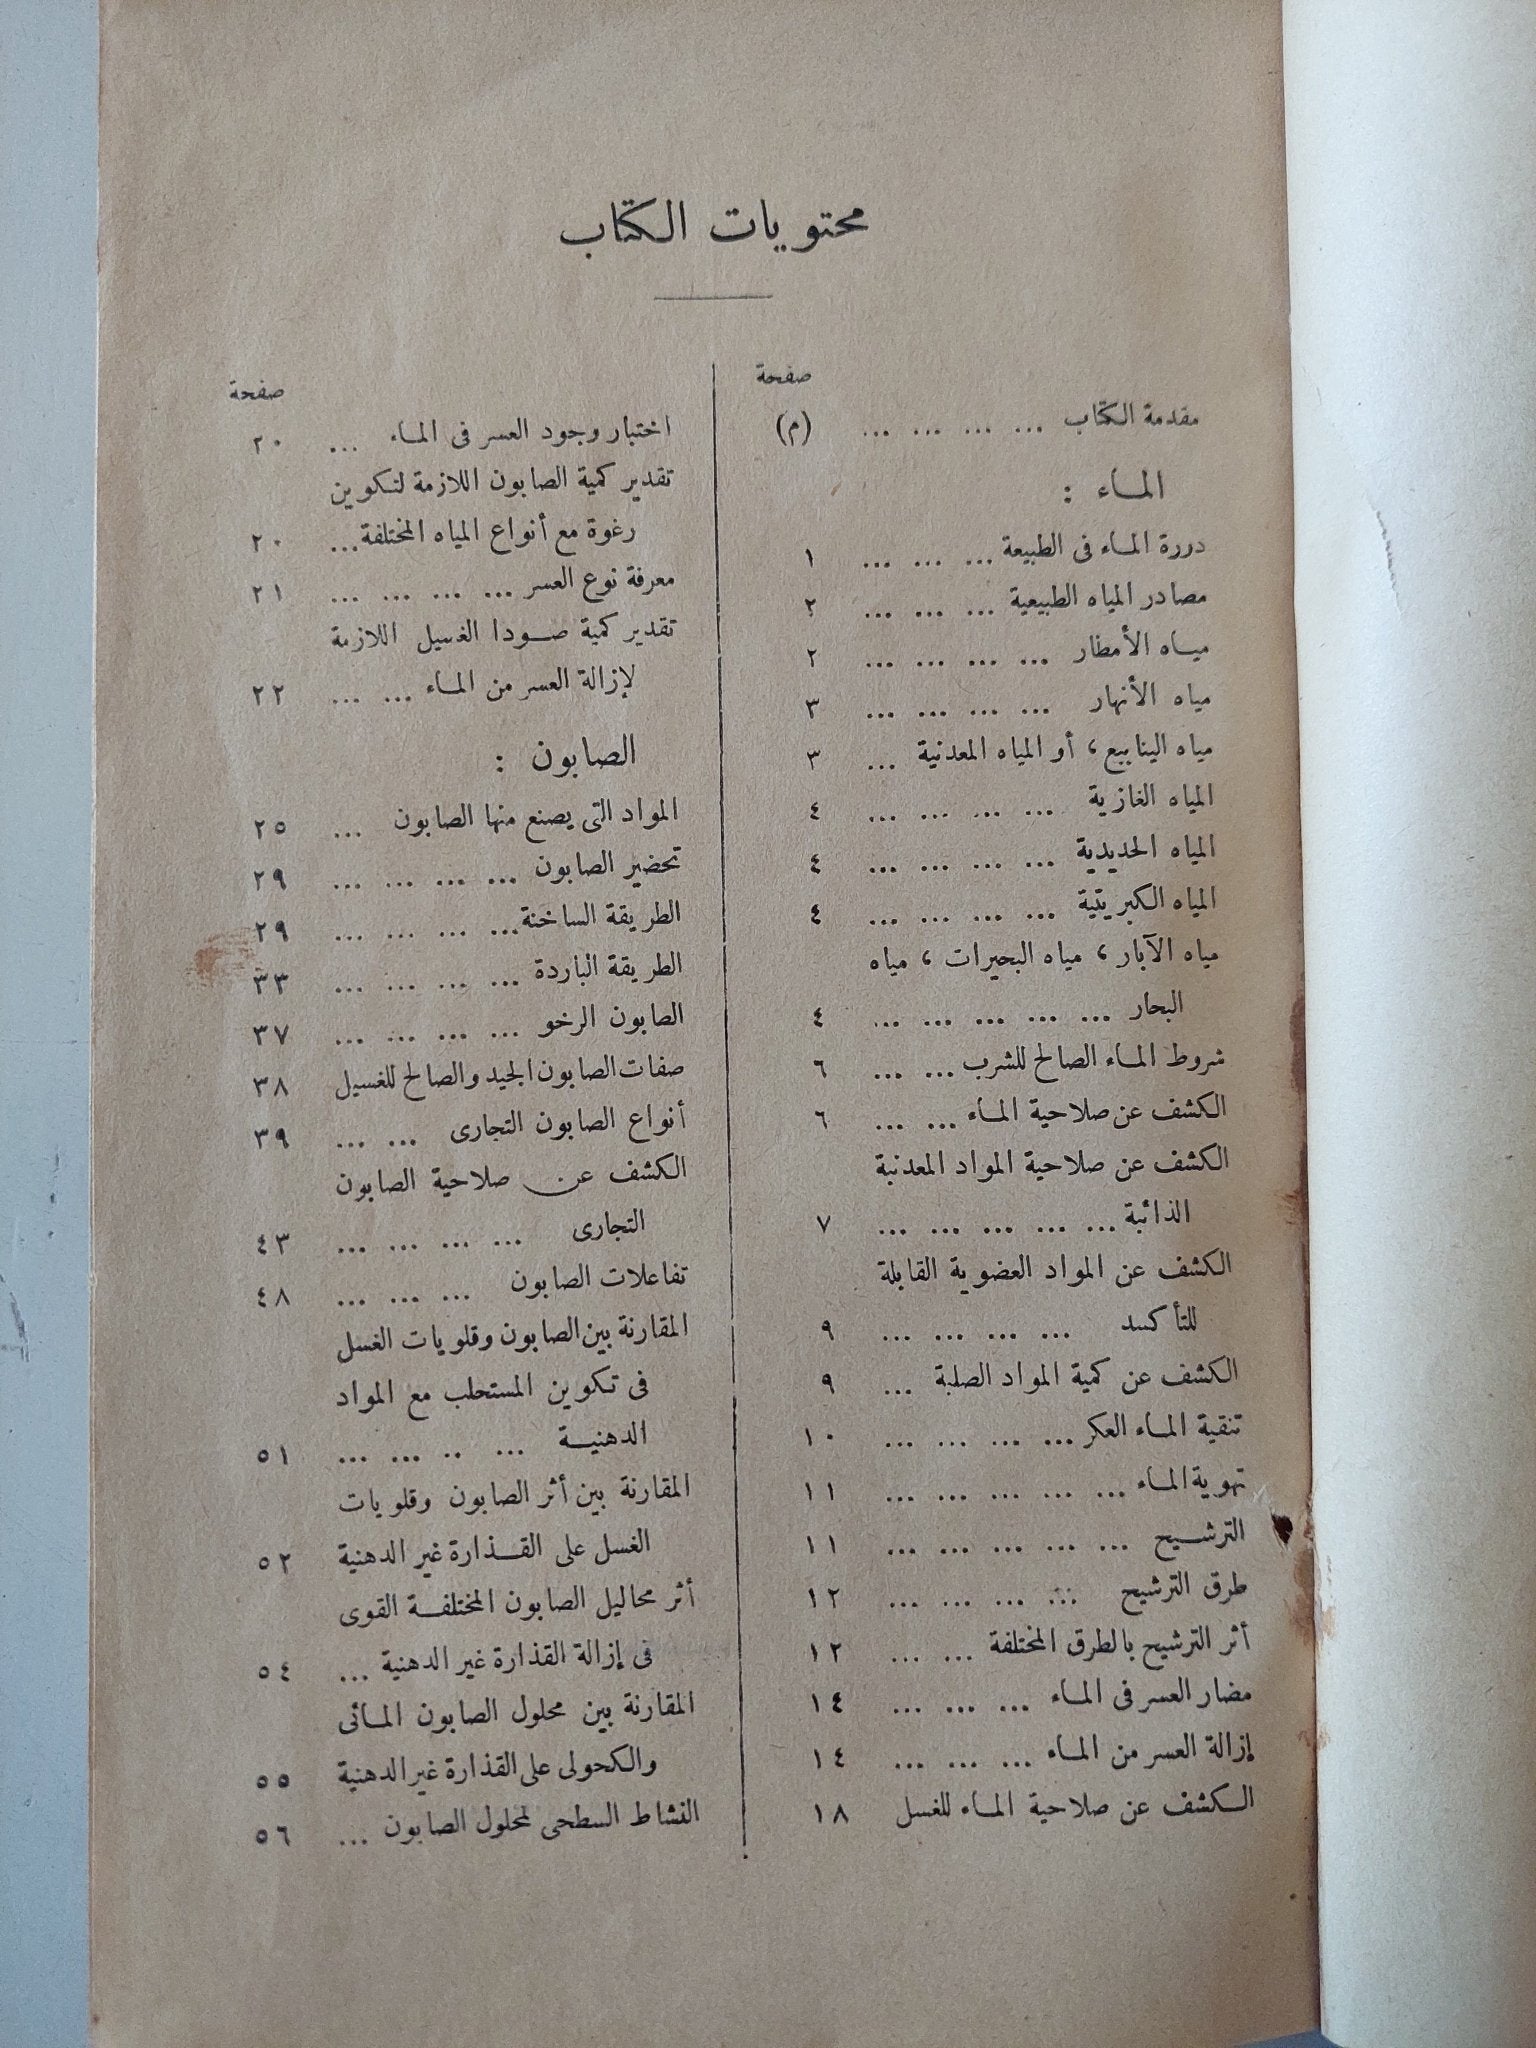 محتويات الكتاب
صفحة
مقدمة الكتاب ... ... ... ... (م)
الماء :
دورة الماء فى الطبيعة ... ... ... ١
مصادر المياه الطبيعية ... ... ... ٢
مياه الأمطار ... ... ... ... ٢
مياه الأنهار ... ... ... ... ٣
مياه الينابيع ، أو المياه المعدنية ... ٣
المياه الغازية ... ... ... ... ٤
المياه الحديدية ... ... ... ... ٤
المياه الكبريتية ... ... ... ... ٤
مياه الآبار ، مياه البحيرات ، مياه
البحار ... ... ... ... ... ٤
شروط الماء الصالح للشرب ... ... ٦
الكشف عن صلاحية الماء ... ... ٦
الكشف عن صلاحية المواد المعدنية
الذائبة ... ... ... ... ... ٧
الكشف عن المواد العضوية القابلة
للتأكسد ... ... ... ... ٩
الكشف عن كمية المواد الصلبة ... ٩
تنقية الماء العكر ... ... ... ... ١٠
تهوية الماء ... ... ... ... ... ١١
الترشيح ... ... ... ... ... ١١
طرق الترشيح ... ... ... ... ١٢
أثر الترشيح بالطرق المختلفة ... ... ١٢
مضار العسر فى الماء ... ... ... ١٤
إزالة العسر من الماء ... ... ... ١٤
الكشف عن صلاحية الماء للغسل ١٨
صفحة
اختبار وجود العسر فى الماء ... ٢٠
تقدير كمية الصابون اللازمة لتكوين
رغوة مع أنواع المياه المختلفة ... ٢٠
معرفة نوع العسر ... ... ... ... ٢١
تقدير كمية صودا الغسيل اللازمة
لإزالة العسر من الماء ... ... ٢٢
الصابون :
المواد التى يصنع منها الصابون ... ٢٥
تحضير الصابون ... ... ... ... ٢٩
الطريقة الساخنة ... ... ... ... ٢٩
الطريقة الباردة ... ... ... ... ٣٣
الصابون الرخو ... ... ... ... ٣٧
صفات الصابون الجيد والصالح للغسيل ٣٨
أنواع الصابون التجارى ... ... ٣٩
الكشف عن صلاحية الصابون
التجارى ... ... ... ... ٤٣
تفاعلات الصابون ... ... ... ٤٨
المقارنة بين الصابون وقلويات الغسل
فى تكوين المستحلب مع المواد
الدهنية ... .. ... ... ٥١
المقارنة بين أثر الصابون وقلويات
الغسل على القذارة غير الدهنية ٥٢
أثر محاليل الصابون المختلفة القوى
فى إزالة القذارة غير الدهنية ... ٥٤
المقارنة بين محلول الصابون المائى
والكحولى على القذارة غير الدهنية ٥٥
النشاط السطحى لمحلول الصابون ... ٥٦